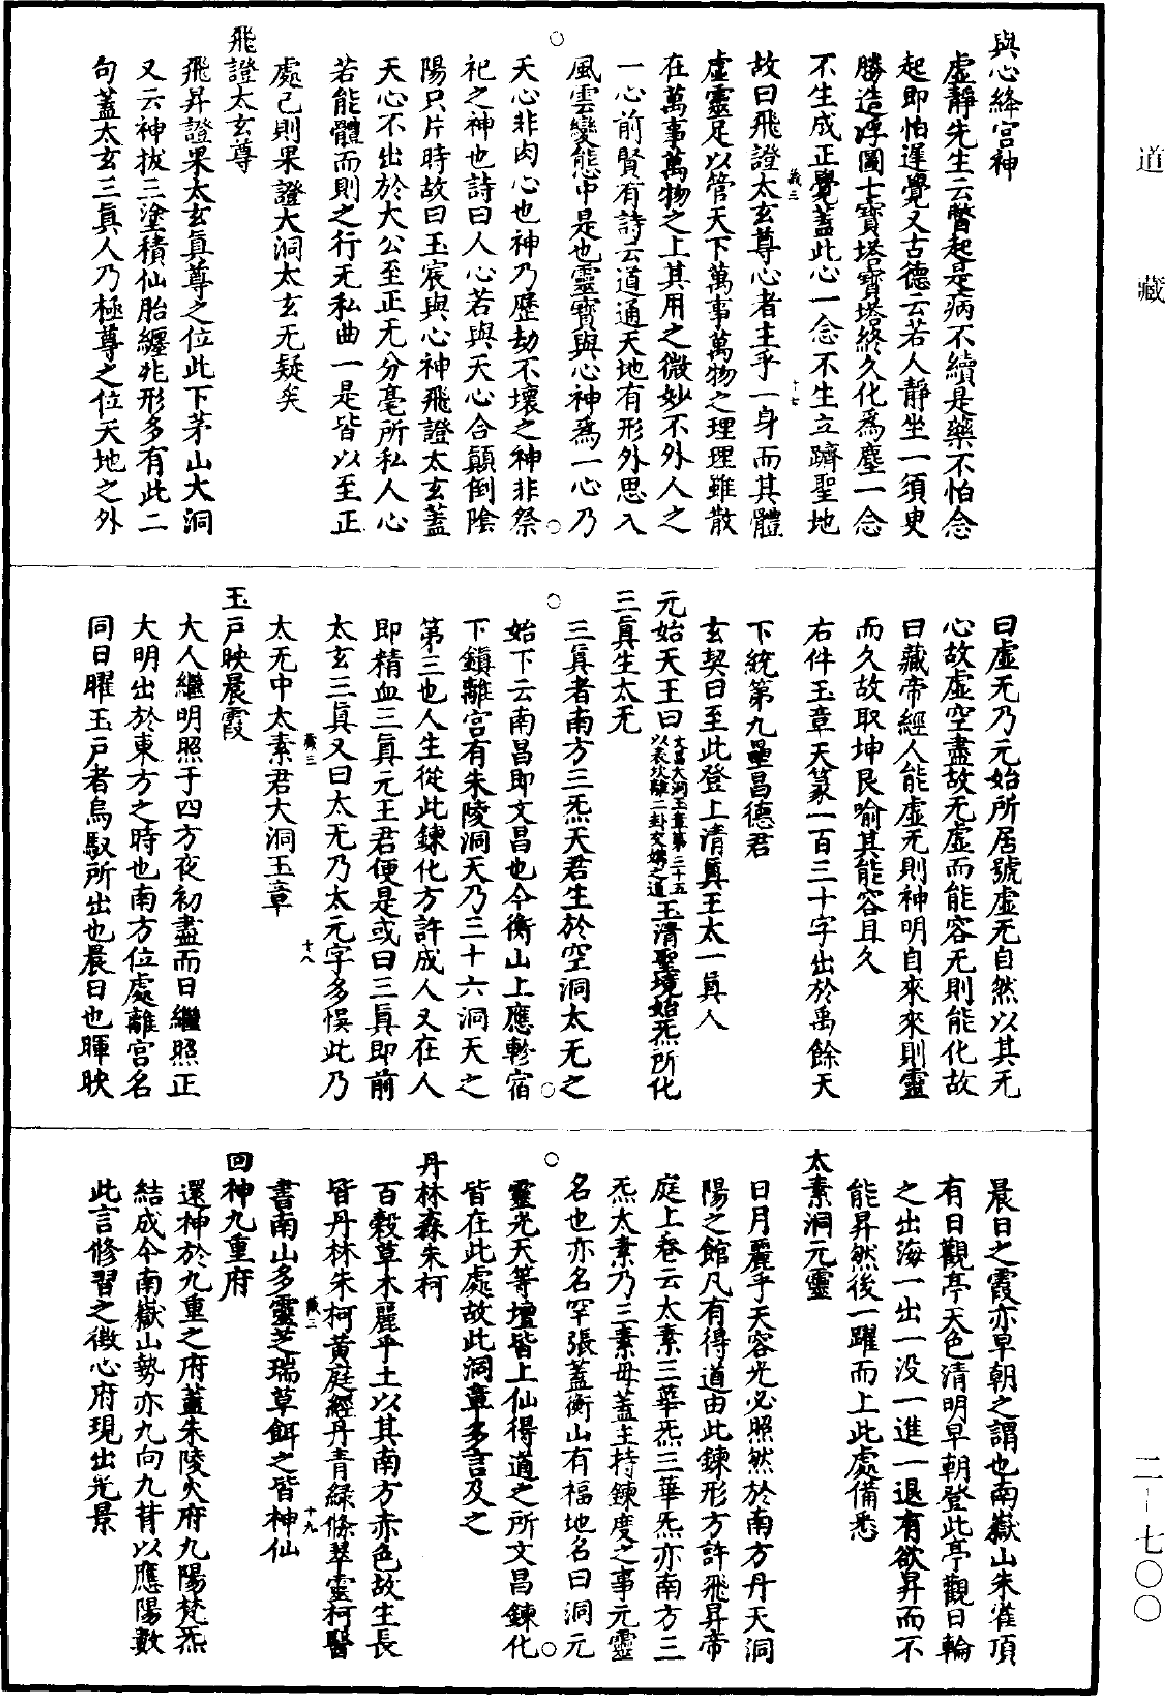 道藏
二-七〇〇
與心絳宮神
虛靜先生云瞥起是病不續是藥不怕念
起即怕遲覺又古德云若人靜坐一須臾
勝造浮圖七寶塔寶塔終久化為塵一念
不生成正覺蓋此心一念不生立躋聖地
故曰飛證太玄尊心者主乎一身而其體
虛靈足以管天下萬事萬物之理理雖散
在萬事萬物之上其用之微妙不外人之
一心前賢有詩云道通天地有形外思入
風雲變態中是也靈寶與心神為一心乃
天心非肉心也神乃歷劫不壞之神非祭
祀之神也詩曰人心若與天心合顛倒陰
陽只片時故曰玉宸與心神飛證太玄蓋
天心不出於大公至正无分毫所私人心
若能體而則之行无私曲一是皆以至正
處己則果證大洞太玄无疑矣
飛證太玄尊
飛昇證果太玄真尊之位此下茅山大洞
又云神拔三塗積仙胎纏非形多有此二
句蓋太玄三真人乃極尊之位天地之外
曰虛无乃元始所居號虛无自然以其无
心故虛空盡故无虛而能容无則能化故
曰藏帝經人能虛无則神明自來來則靈
而久故取坤艮喻其能容且久
右件玉章天篆一百三十字出於禹餘天
下統第九壘昌德君
玄契曰至此登上清真王太一真人
元始天王曰文昌大洞玉章第三十五以表坎離二卦交媾之道玉清聖境始炁所化
三真生太无
三真者南方三炁天君生於空洞太无之
始下云南昌即文昌也今衡山上應軫宿
下鎮離宮有朱陵洞天乃三十六洞天之
第三也人生從此鍊化方許成人又在人
即精血三真元王君便是或曰三真即前
太玄三真又曰太无乃太元字多悞此乃
太无中太素君大洞玉章
玉戶映晨霞
大人繼明照于四方夜初盡而日繼照正
大明出於東方之時也南方位處離宮名
同日曜玉戶者烏馭所出也晨日也暉映
晨日之霞亦早朝之謂也南嶽山朱雀頂
有日觀亭天色清明早朝登此亭觀日輪
之出海一出一没一進一退有欲昇而不
能昇然後一躍而上此處備悉
太素洞元靈
日月麗乎天容光必照然於南方丹天洞
陽之館凡有得道由此鍊形方許飛昇帝
庭上卷云太素三華炁三華炁亦南方三
炁太素乃三素母蓋主持鍊度之事元靈
名也亦名罕張蓋衡山有福地名曰洞元
靈光天等壇皆上仙得道之所文昌鍊化
皆在此處故此洞章多言及之
丹林森朱柯
百穀草木麗乎土以其南方赤色故生長
皆丹林朱柯黃庭經丹青綠條翠靈柯醫
書南山多靈芝瑞草餌之皆神仙
回神九重府
還神於九重之府蓋朱陵火府九陽梵炁
結成今南嶽山勢亦九向九背以應陽數
此言修習之徴心府現出光景